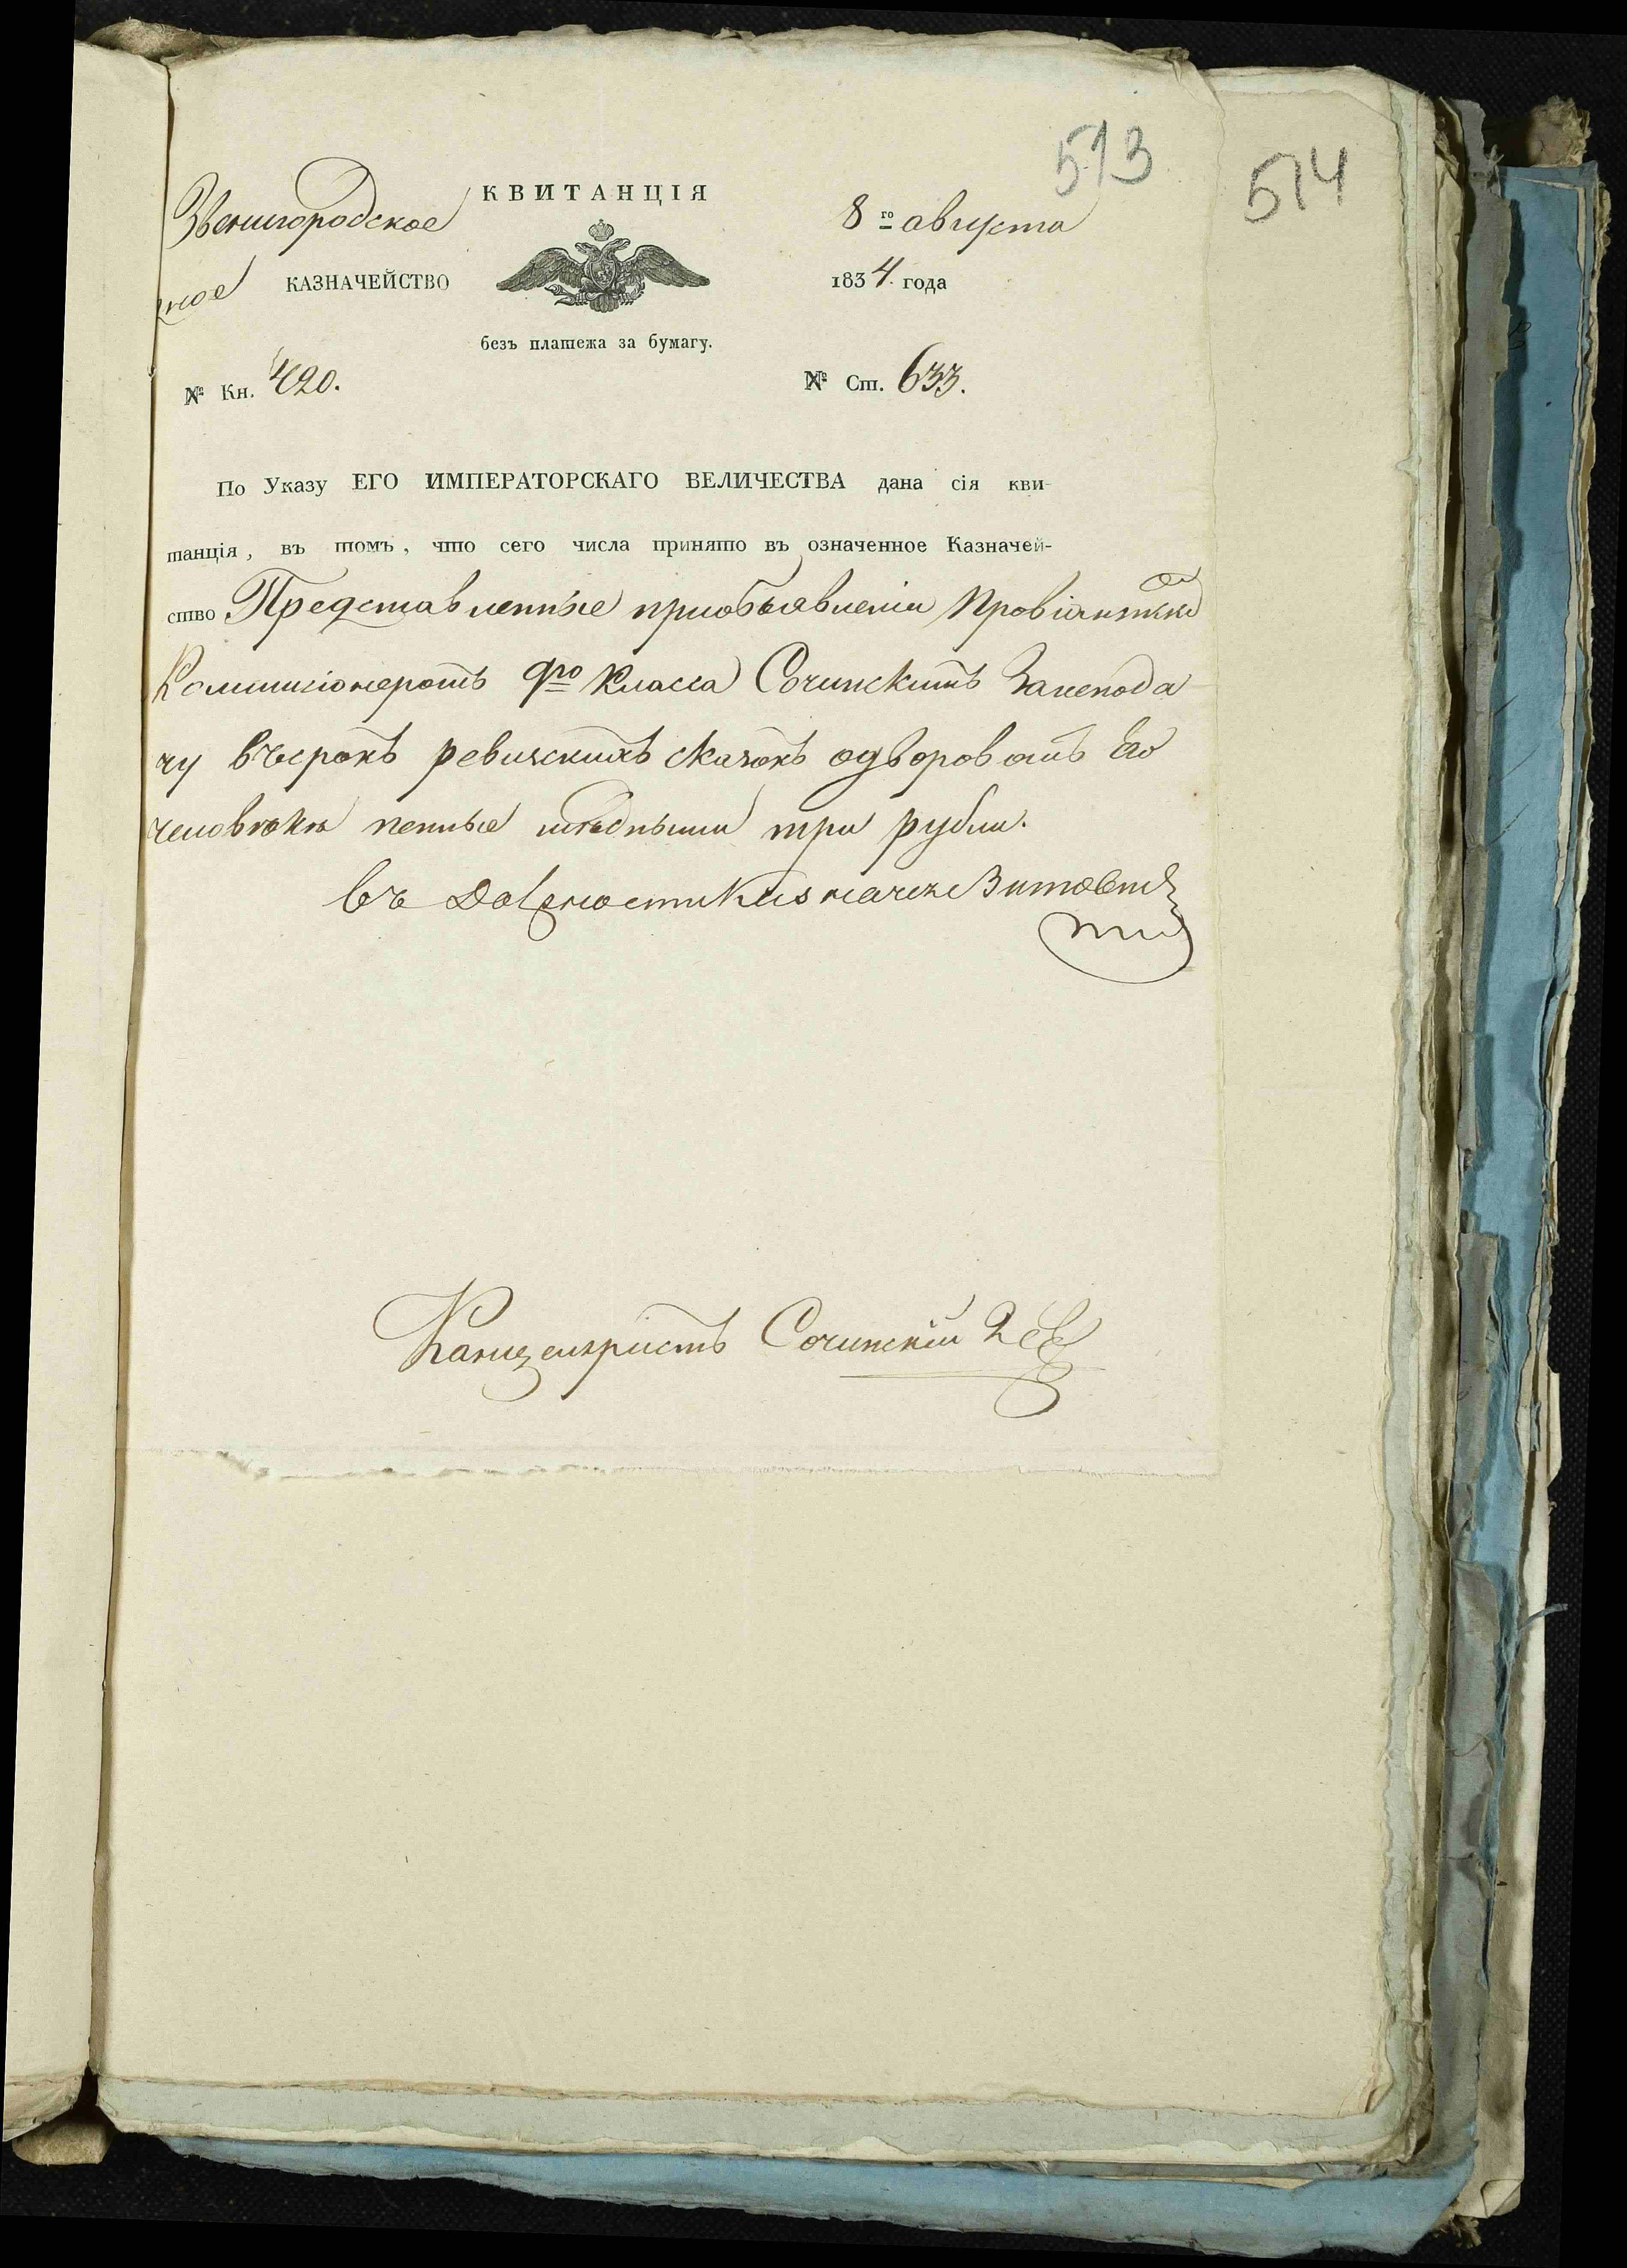 513
514
КВИТАНЦІЯ
Звенигородское
8го августа
ное КАЗНАЧЕЙСТВО
1834. года
безъ платежа за бумагу.
№ Кн. 420.
№ Ст. 633.
По Указу ЕГО ИМПЕРАТОРСКАГО ВЕЛИЧЕСТВА дана сія кви-
танція, въ томъ, что сего числа принято въ означенное Казначей-
ство Представленные приобъявленіи Провіантски
Коммисіонеромъ 9го Класса Сочинскимъ Занепода
чу въсрокъ ревизскихъ сказокъ одворовомъ Его
человѣкѣ пенные мѣдными три рубли.
въ Должности Казначея
Канцеляристъ Сочинскій